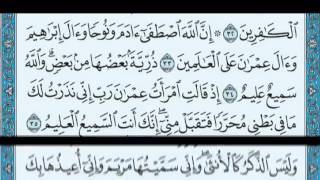 ٱلۡكَٰفِرِينَ ٣٢ ۞ إِنَّ ٱللَّهَ ٱصۡطَفَىٰٓ ءَادَمَ وَنُوحٗا وَءَالَ إِبۡرَٰهِيمَ
وَءَالَ عِمۡرَٰنَ عَلَى ٱلۡعَٰلَمِينَ ٣٣ ذُرِّيَّةَۢ بَعۡضُهَا مِنۢ بَعۡضٖۗ وَٱللَّهُ
سَمِيعٌ عَلِيمٌ ٣٤ إِذۡ قَالَتِ ٱمۡرَأَتُ عِمۡرَٰنَ رَبِّ إِنِّي نَذَرۡتُ لَكَ
مَا فِي بَطۡنِي مُحَرَّرٗا فَتَقَبَّلۡ مِنِّيٓۖ إِنَّكَ أَنتَ ٱلسَّمِيعُ ٱلۡعَلِيمُ ٣٥
وَلَيۡسَ ٱلذَّكَرُ كَٱلۡأُنثَىٰۖ وَإِنِّي سَمَّيۡتُهَا مَرۡيَمَ وَإِنِّيٓ أُعِيذُهَا بِكَ